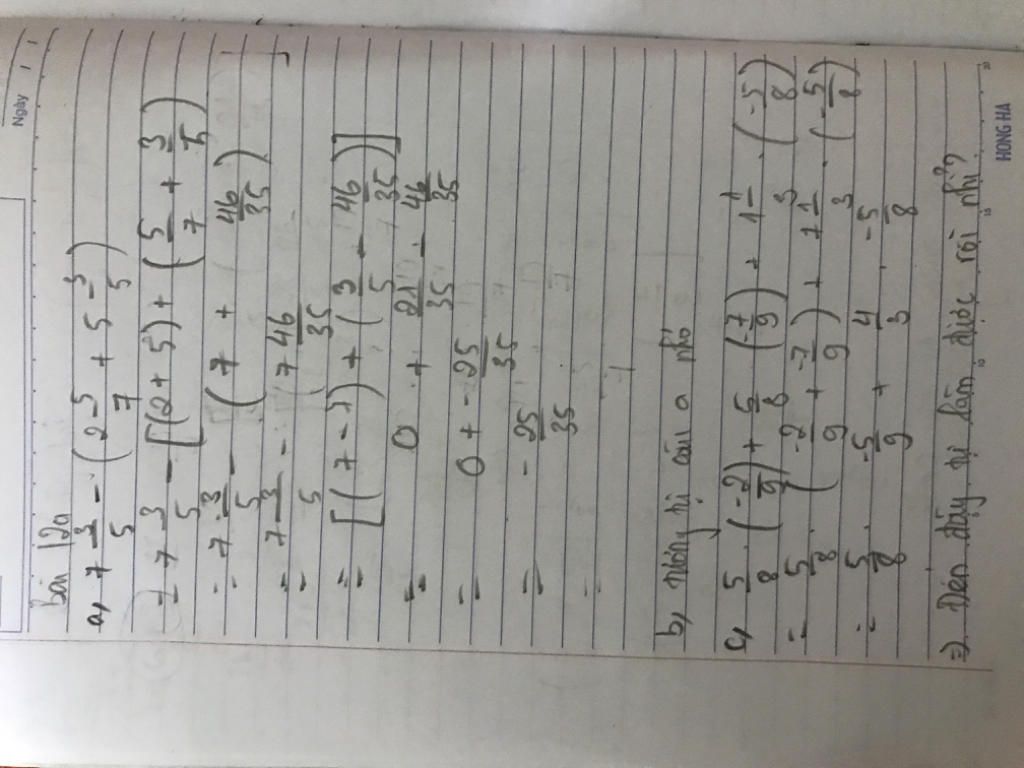 Ngày
Bài 12a
a, 7 3/5 - (2 5/7 + 5 3/5)
= 7 3/5 - [(2 + 5) + (5/7 + 3/5)]
= 7 3/5 - (7 + 46/35)
= 7 3/5 - (7 46/35
= [(7 - 7) + (3/5 - 46/35)]
= 0 + 21/35 - 46/35
= 0 + -25/35
= -25/35
=
b, tương tự câu a nhó
c, 5/8 . (-2/9) + 5/8 . (-7/9) + 1 1/3 . (-5/8)
= 5/8 . (-2/9 + -7/9) + 1 1/3 . (-5/8)
= 5/8 . -5/9 + 4/3 . -5/8
=) Đến đây tự làm được rồi nhỉ?
HONG HA